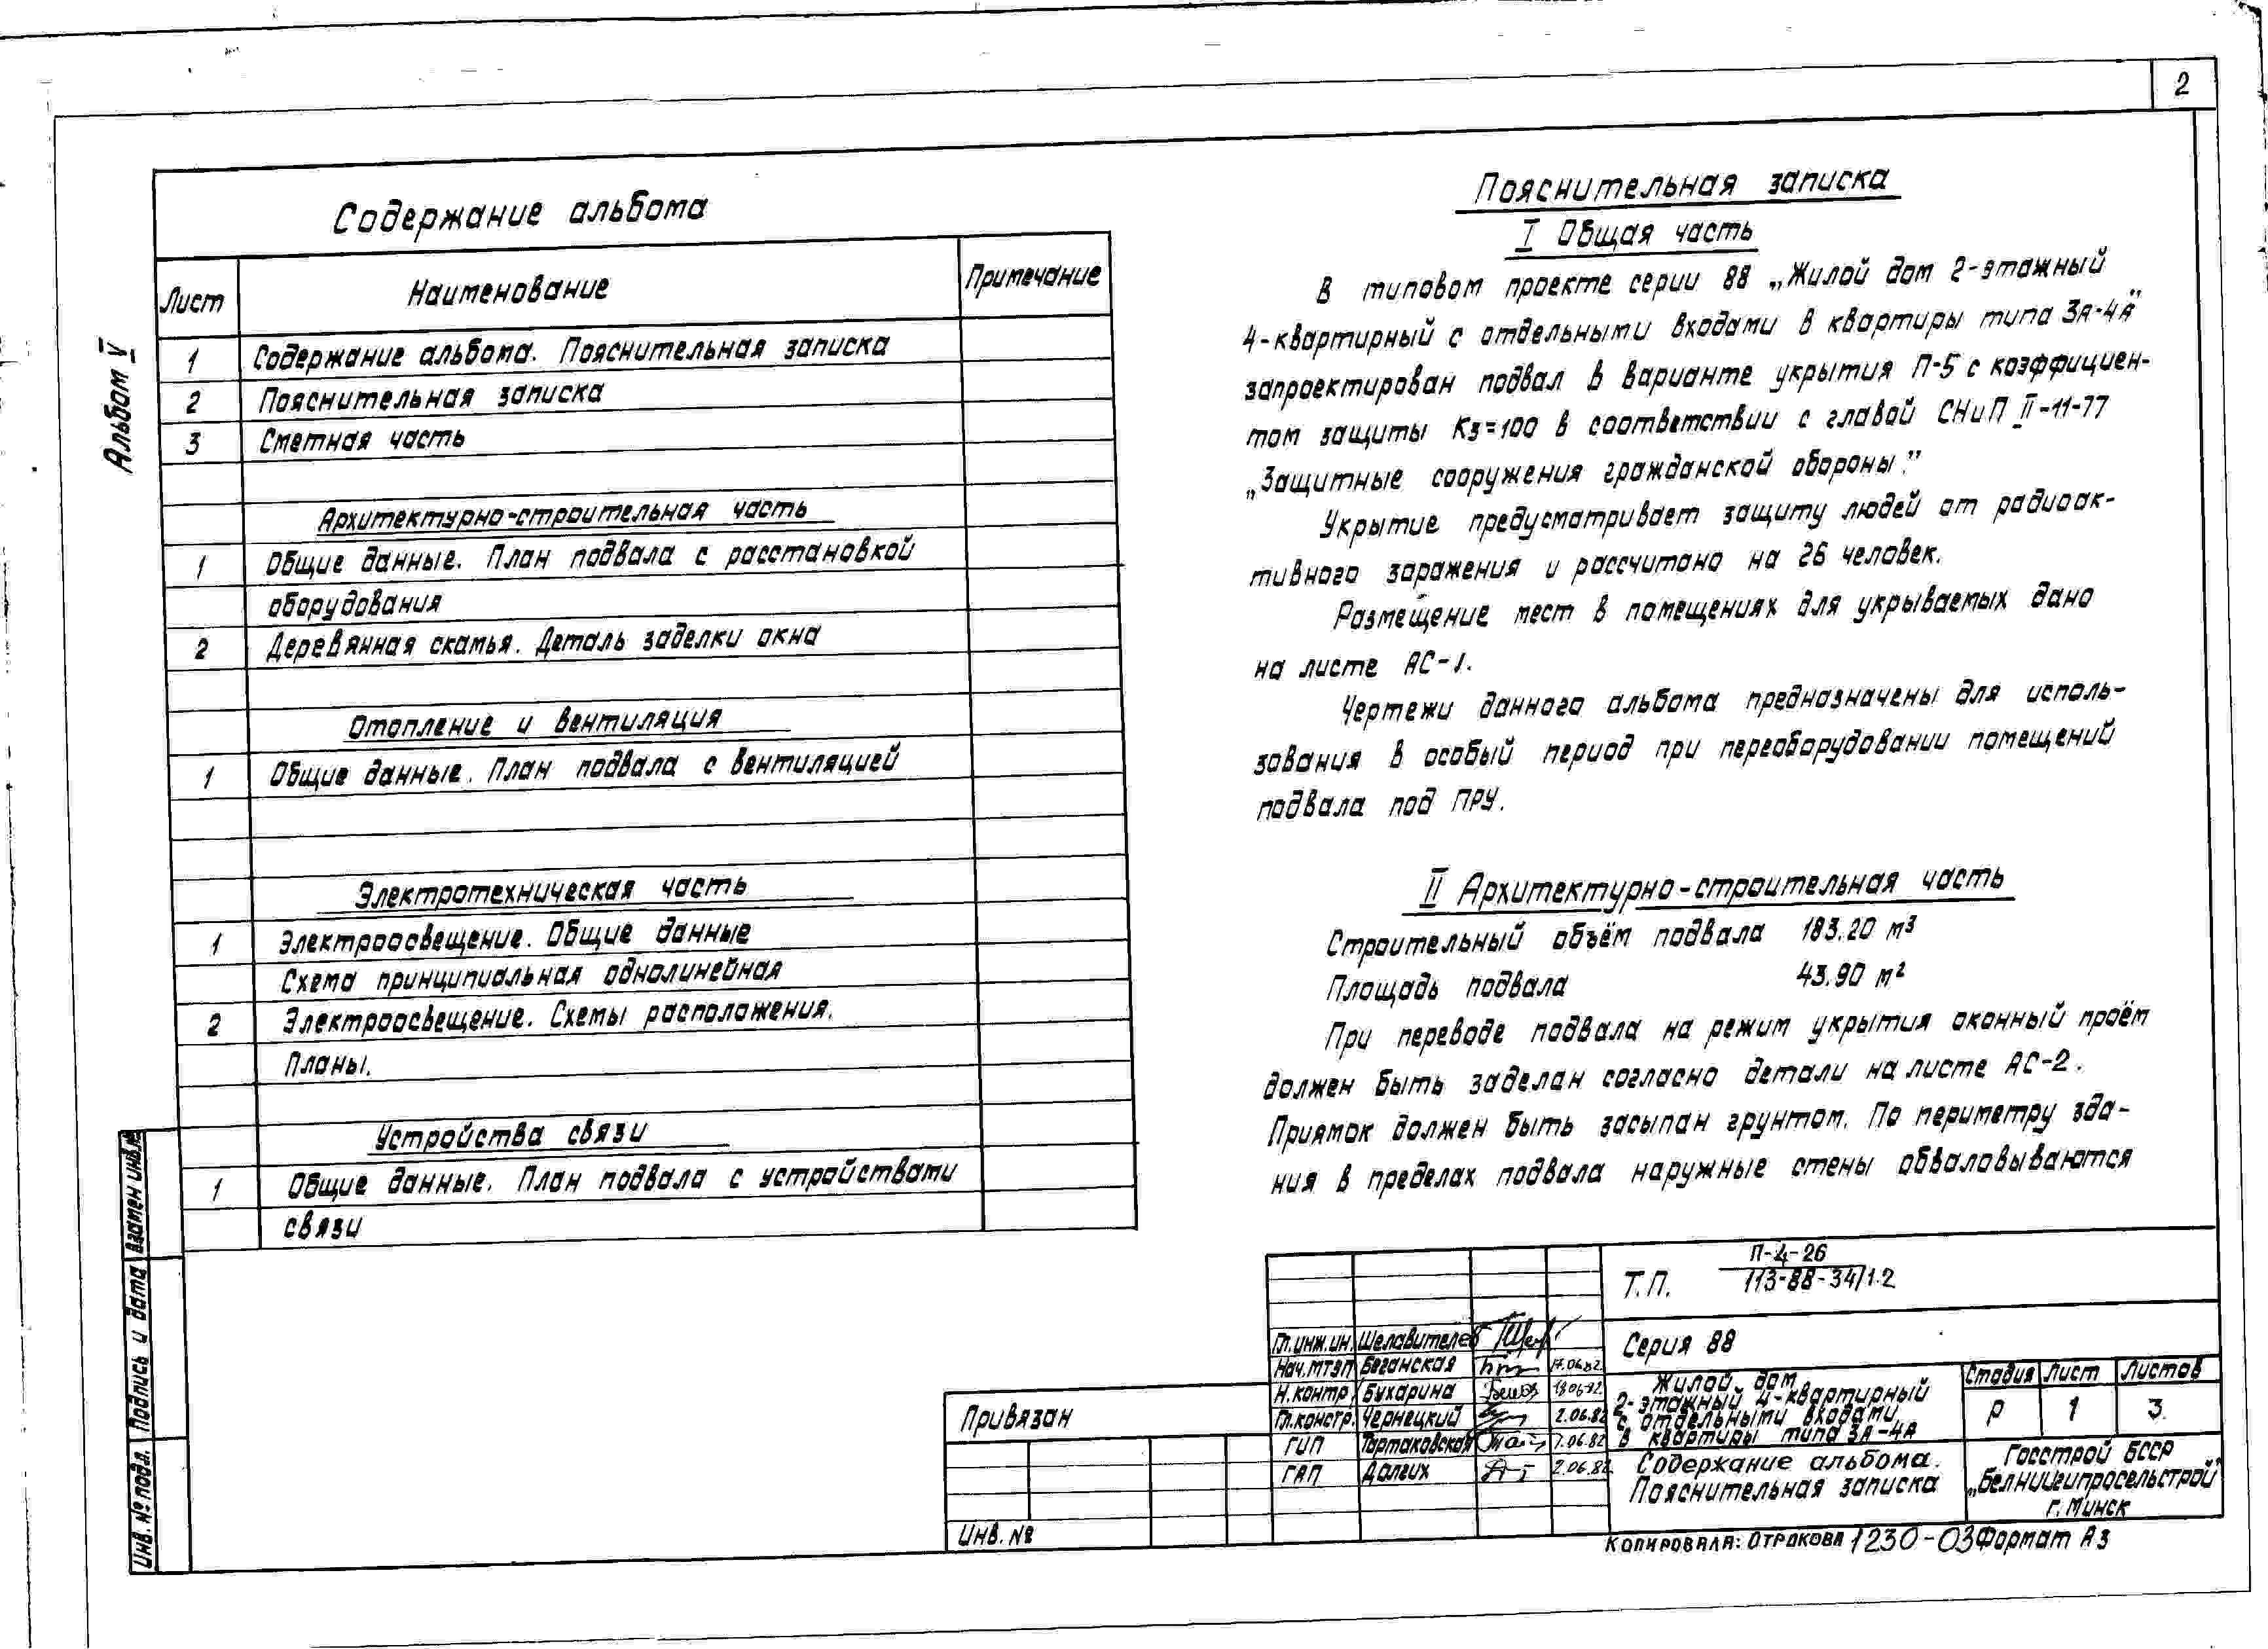 2
Альбом V
Содержание альбома
Лист Наименование Примечание
1 Содержание альбома. Пояснительная записка
2 Пояснительная записка
3 Сметная часть
Архитектурно-строительная часть
1 Общие данные. План подвала с расстановкой
оборудования
2 Деревянная скамья. Деталь заделки окна
Отопление и вентиляция
1 Общие данные. План подвала с вентиляцией
Электротехническая часть
1 Электроосвещение. Общие данные
Схема принципиальная однолинейная
2 Электроосвещение. Схемы расположения.
Планы.
Устройства связи
1 Общие данные. План подвала с устройствами
связи
Пояснительная записка
I Общая часть
В типовом проекте серии 88 „Жилой дом 2-этажный
4-квартирный с отдельными входами в квартиры типа 3А-4А"
запроектирован подвал в варианте укрытия П-5 с коэффициен-
том защиты Кз=100 в соответствии с главой СНиП II-11-77
„Защитные сооружения гражданской обороны."
Укрытие предусматривает защиту людей от радиоак-
тивного заражения и рассчитано на 26 человек.
Размещение мест в помещениях для укрываемых дано
на листе АС-1.
Чертежи данного альбома предназначены для исполь-
зования в особый период при переоборудовании помещений
подвала под ПРУ.
II Архитектурно-строительная часть
Строительный объём подвала 183.20 м³
Площадь подвала 43.90 м²
При переводе подвала на режим укрытия оконный проём
должен быть заделан согласно детали на листе АС-2.
Приямок должен быть засыпан грунтом. По периметру зда-
ния в пределах подвала наружные стены обваловываются
Взамен инв.№
Подпись и дата
Инв. № подл.
Привязан
Инв. №
Гл.инж.ин. Шелавителев
Нач.МТЭП Беганская 17.06.82.
Н.контр. Бухарина 18.06.82.
Гл.констр. Чернецкий 2.06.82
ГИП Тартаковская 1.06.82
ГАП Далгих 2.06.82.
Т.П. П-4-26
113-88-34/1.2
Серия 88
Жилой дом
2-этажный 4-квартирный
с отдельными входами
в квартиры типа 3А-4А
Стадия Лист Листов
Р 1 3
Содержание альбома.
Пояснительная записка
Госстрой БССР
„Белниигипросельстрой"
г. Минск
Копировала: Отрокова 1230-03 Формат А3